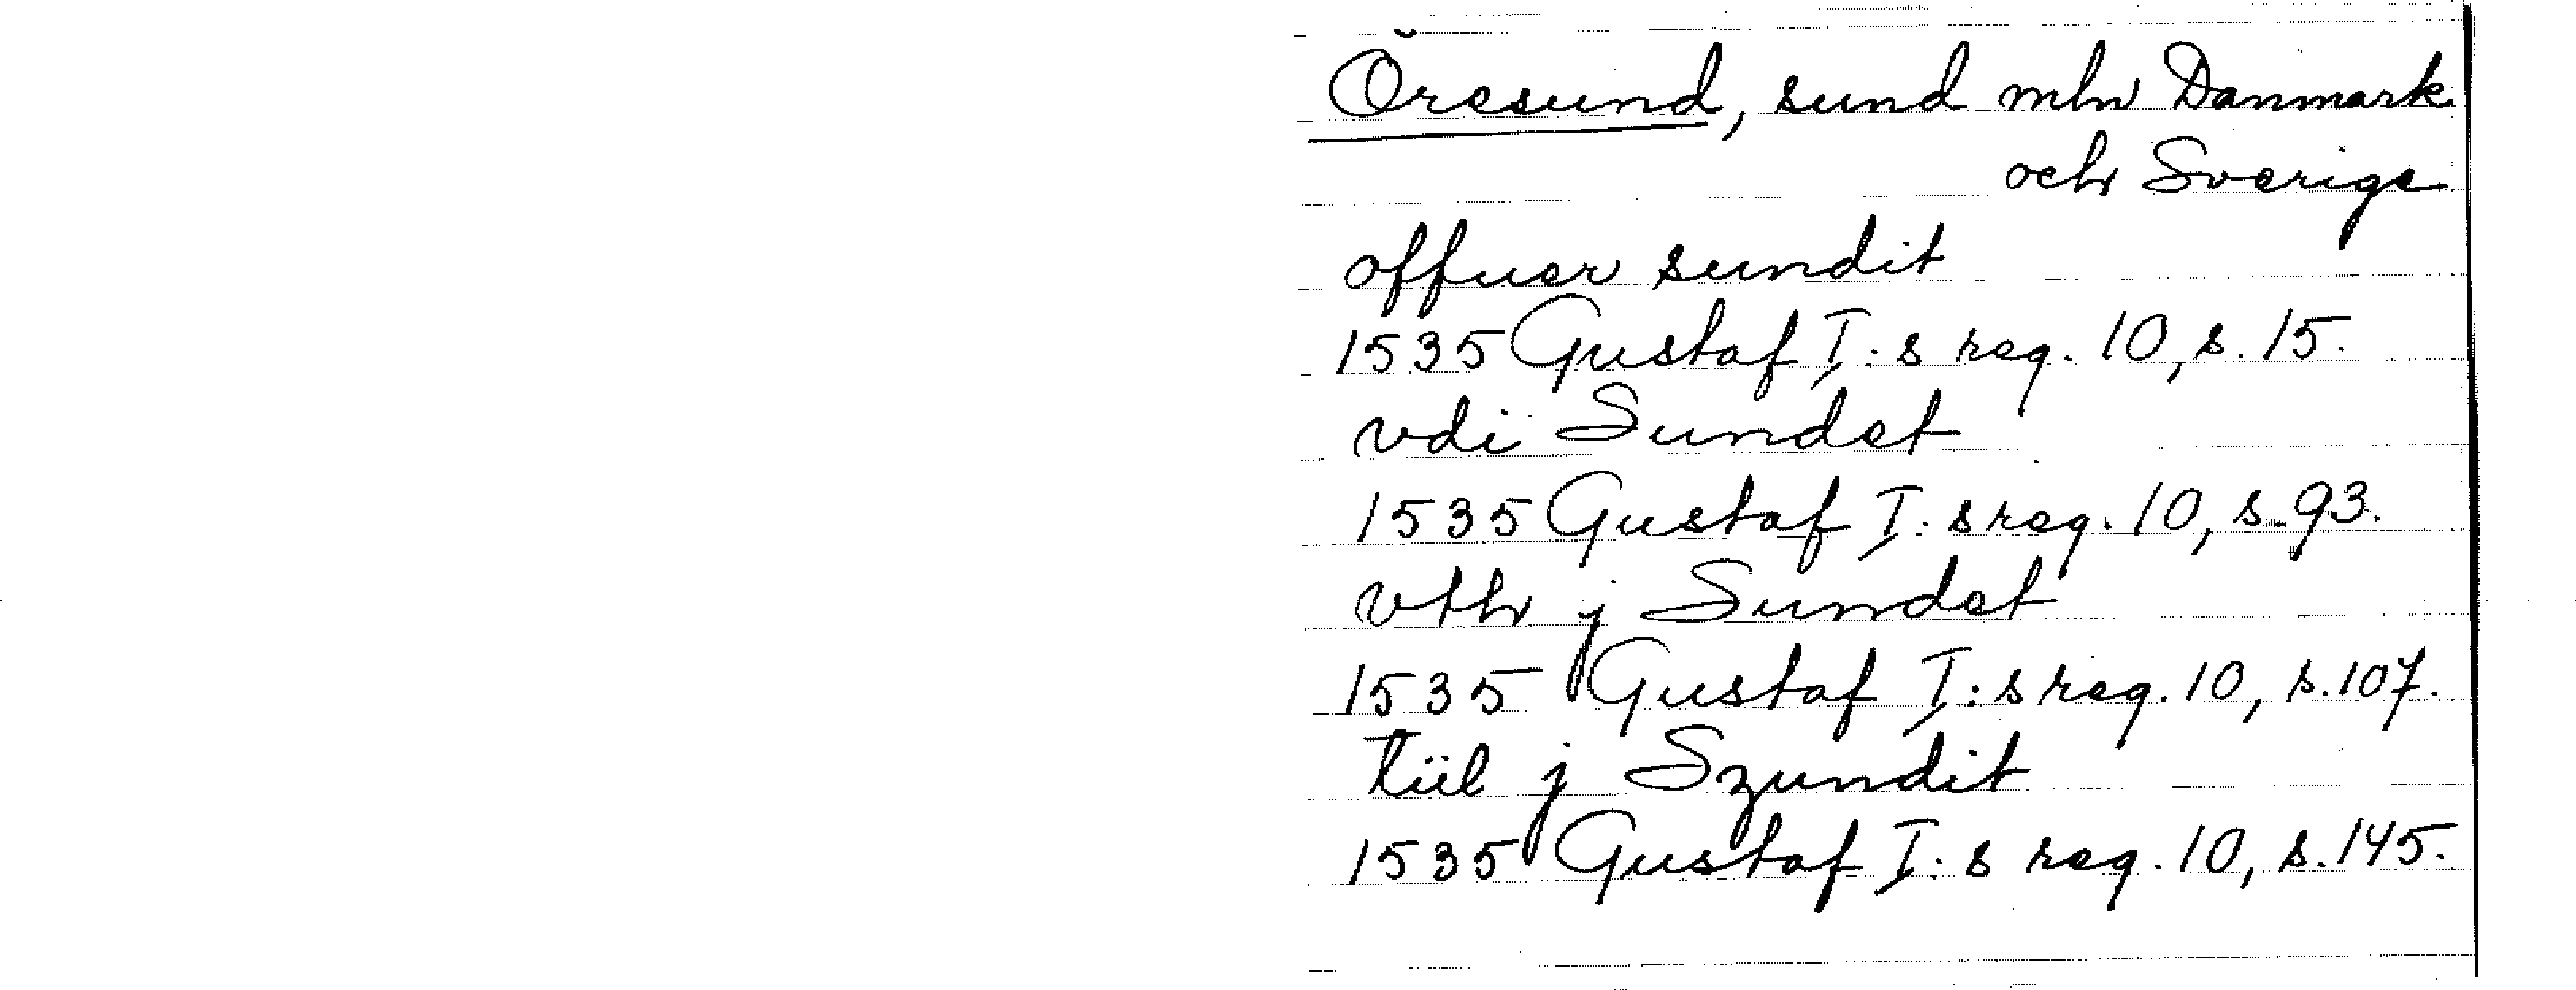 Öresund, sund mln Danmark
och Sverige
offuer sundit
1535 Gustaf I:s reg. 10, s. 15.
vdi Sundet
1535 Gustaf I:s reg. 10, s. 93.
vth j Sundet
1535 Gustaf I:s reg. 10, s. 107.
tiil j Szundit
1535 Gustaf I:s reg. 10, s. 145.